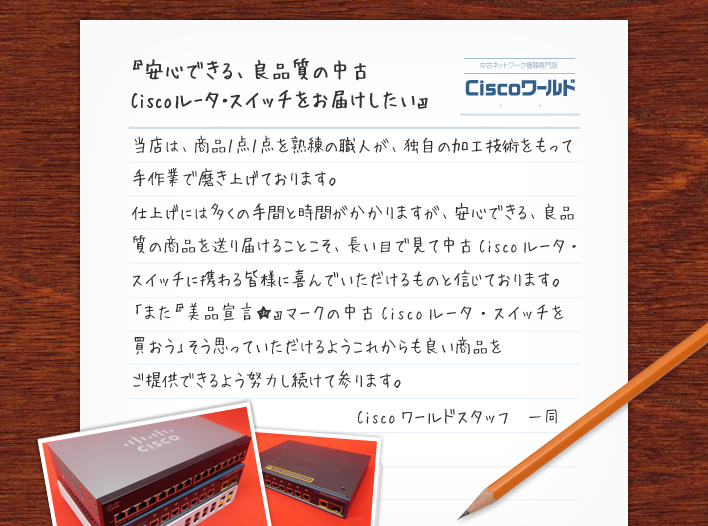 『安心できる、良品質の中古
Ciscoルータ・スイッチをお届けしたい』
中古ネットワーク機器専門店
Ciscoワールド
当店は、商品1点1点を熟練の職人が、独自の加工技術をもって
手作業で磨き上げております。
仕上げには多くの手間と時間がかかりますが、安心できる、良品
質の商品を送り届けることこそ、長い目で見て中古 Cisco ルータ・
スイッチに携わる皆様に喜んでいただけるものと信じております。
「また『美品宣言★』マークの中古 Cisco ルータ・スイッチを
買おう」そう思っていただけるようこれからも良い商品を
ご提供できるよう努力し続けて参ります。
Cisco ワールドスタッフ 一同
CISCO